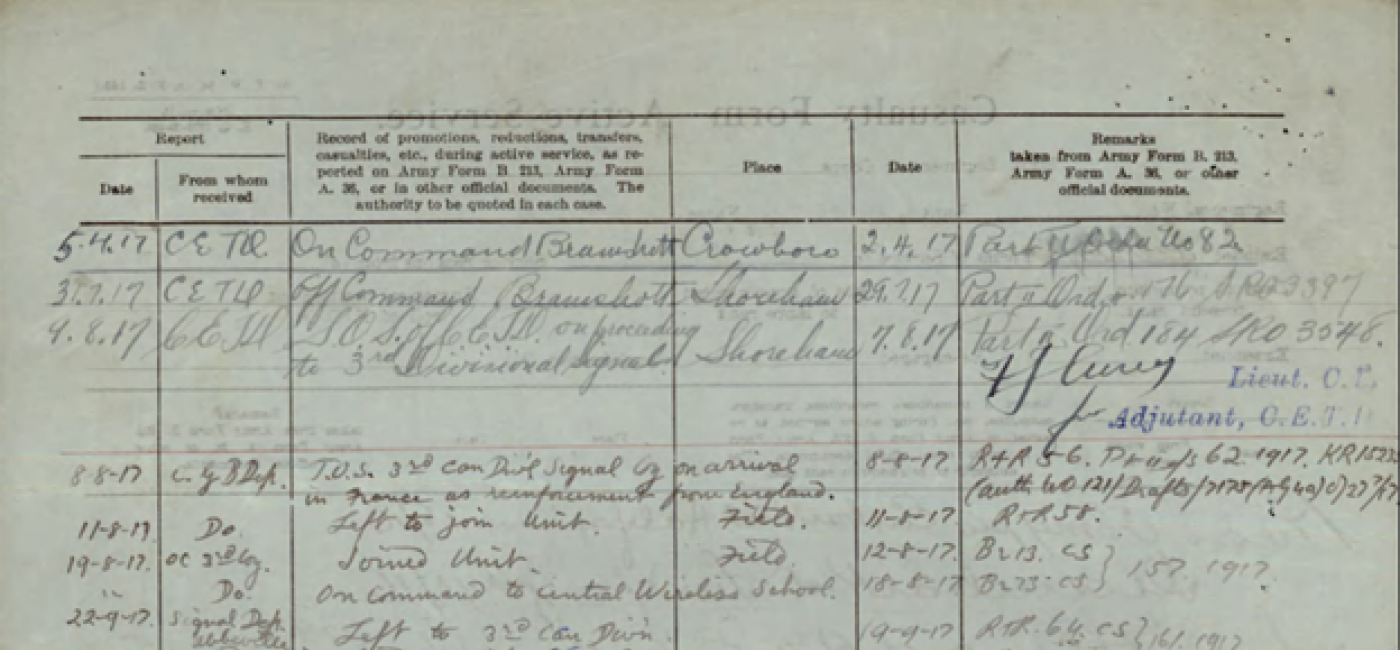 Casualty Form Active Service.
Report
Date
From whom
received
Record of promotions, reductions, transfers,
casualties, etc., during active service, as re-
ported on Army Form B 213, Army Form
A. 36, or in other official documents. The
authority to be quoted in each case.
Place
Date
Remarks
taken from Army Form B. 213,
Army Form A. 36, or other
official documents.
5.4.17 C E T D. On Command Bramshott Crowboro 2.4.17 Part II Order No 82
31.7.17 C E T D Off Command Bramshott Shoreham 29.7.17 Part II Ord 3397
9.8.17 C E T D S.O.S. of C.E.T.D. on proceeding Shoreham 7.8.17 Part II Ord 184 3548.
to 3rd Divisional Signal
Lieut. C.E.
for Adjutant, C.E.T.D
8-8-17 C. G B Dep. T.O.S. 3rd Can Div'l Signal Coy on arrival 8-8-17. R+R 56. 62 1917.
in France as reinforcement from England. (auth WO 121/Drafts/7175
11-8-17 Do. Left to join Unit. Field. 11-8-17 R+R 58.
19-8-17. OC 3rd Coy. Joined Unit. Field 12-8-17. B213. CS } 157. 1917.
" Do. On Command to Central Wireless School. 18-8-17 B213. CS
22-9-17 Signal Dep. Abbeville Left to 3rd Can Div'n. 19-9-17 R+R. 64. CS } 161. 1917